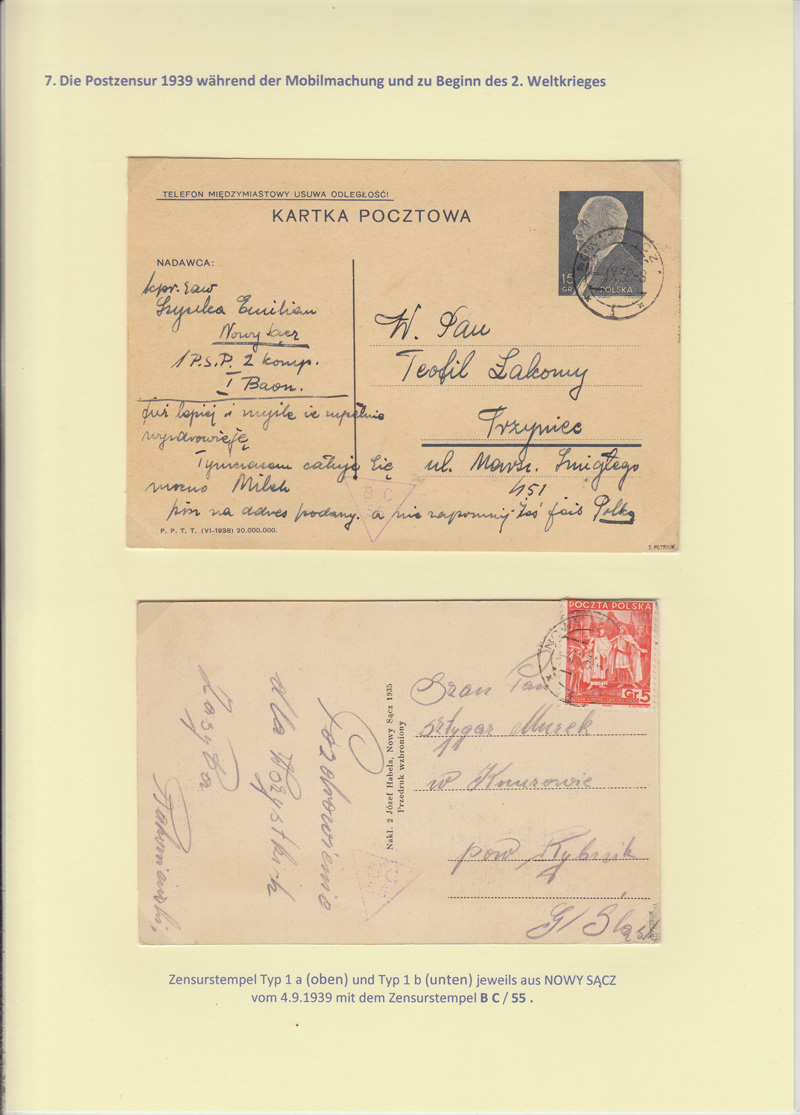 7. Die Postzensur 1939 während der Mobilmachung und zu Beginn des 2. Weltkrieges
TELEFON MIĘDZYMIASTOWY USUWA ODLEGŁOŚĆ!
KARTKA POCZTOWA
15 GR.
POLSKA
NADAWCA:
Szyszka Emilian
Nowy Sącz
1 P.S.P. 2 komp.
I Baon.
W. Pan
Teofil Zakomy
Trzyniec
ul. Marsz. Śmigłego
451
Już lepiej i myślę że zupełnie
wyzdrowieję
Tymczasem całuję Cię
mocno Milek
pisz na adres podany. a nie zapomnij żeś jest Polką
B C
P. P. T. T. (VI-1938) 20.000.000.
S. PETRIUK
POCZTA POLSKA
Gr. 5
Nakł. 2 Józef Habela, Nowy Sącz 1935
Przedruk wzbroniony
Pozdrowienia
dla Wszystkich
Szan Pan
sztygar Murek
w Knurowie
pow Rybnik
G/Śląsk
Zensurstempel Typ 1 a (oben) und Typ 1 b (unten) jeweils aus NOWY SĄCZ
vom 4.9.1939 mit dem Zensurstempel B C / 55 .